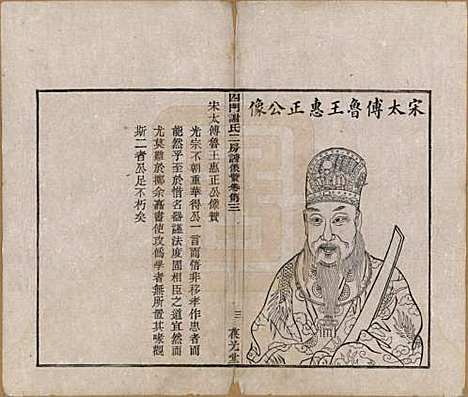 宋太傅魯王惠正公像
四門謝氏二房譜像贊卷第三
三
夜光堂
宋太傅魯王惠正公像贊
光宗不朝重華得公一言而悟非移孝作忠者而
能然乎至於惜名器謹法度固相臣之道宜然而
尤莫難於擲余嚞書使攻僞學者無所置其喙觀
斯二者公足不朽矣